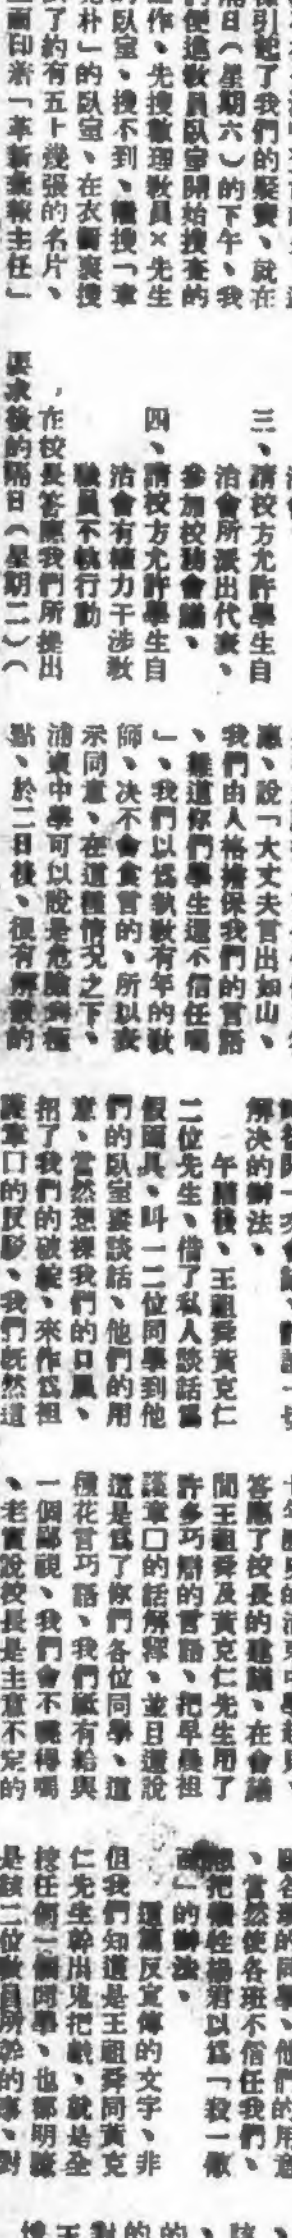 引起了我們的疑竇、就在
日（星期六）的下午、我
們便這敎員臥室開始搜查的
作、先搜數理敎員×先生
的臥室、搜不到、繼搜「章
克朴」的臥室、在衣裏搜
了約有五十幾張的名片、
面印着「革新主任」
三、請校方允許學生自
治會所派出代表、
參加校務會議、
四、請校方允許學生自
治會有權力干涉敎
職員不軌行動
、在校長答應我們所提出
要求後的隔日（星期二）（
應、說「大丈夫言出如山、
我們由人格擔保我們的言語
、難道你們學生還不信任嗎
」、我們以爲執敎有年的敎
師、决不會食言的、所以表
示同意、在這種情况之下、
浦東中學可以說是危險到極
點、於二日後、很有解散的
解决的辦法、
午膳後、王祖舜黃克仁
二位先生、借了私人談話爲
假面具、叫一二位同學到他
們的臥室裏談話、他們的用
意、當然想探我們的口風、
招了我們的破綻、來作爲袒
護章口的反影、我們旣然這
十年歷史的浦東中學起見、
答應了校長的建議、在會議
間王祖舜及黃克仁先生用了
許多巧辯的言語、把早晨袒
護章口的話解釋、並且還說
這是爲了你們各位同學、這
種花言巧語、我們祗有給與
一個鄙視、我們會不曉得嗎
、老實說校長是主意不定的
各班的同學、他們的用意
、當然使各班不信任我們、
想把犧牲楊君以爲「殺一儆
百」的辦法、
這篇反宣傳的文字、非
但我們知道是王祖舜同黃克
仁先生幹出鬼把戲、就是全
校任何一個同學、也都明瞭
是該二位敎員所幹的事、對